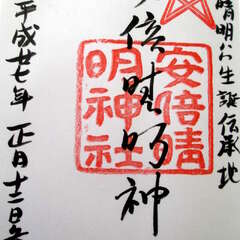 晴明公生誕伝承地
倍晴明神
安倍晴
明神社
平成廿七年 正月十二日